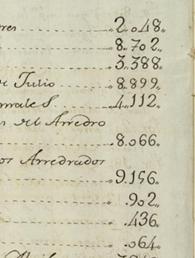 res ... 2.048.
8.702
3.388.
e Julio ... 8.899.
rrale S. ... 4.112.
s del Arredro
8.066.
os Arredrados
9.156.
902
.436.
.064.